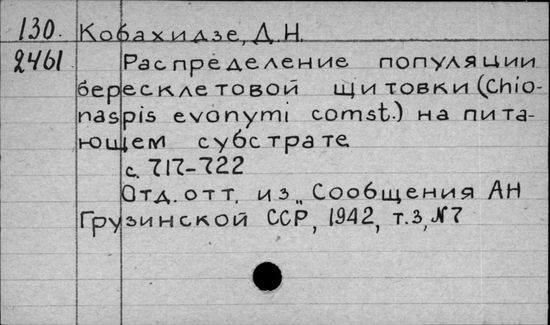 130. Кобахидзе, Д.Н.
2461 Распределение популяции
бересклетовой щитовки (Chio-
naspis evonymi comst.) на пита-
ющем субстрате.
с. 717-722
Отд. отт. из „Сообщения АН
Грузинской ССР, 1942, т.3, №7